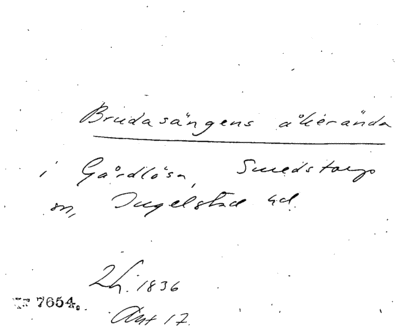 Brudasängens åkerända
i Gårdlösa, Smedstorps
sn, Ingelstad hd.
Lh. 1836
7654.
Akt 17.